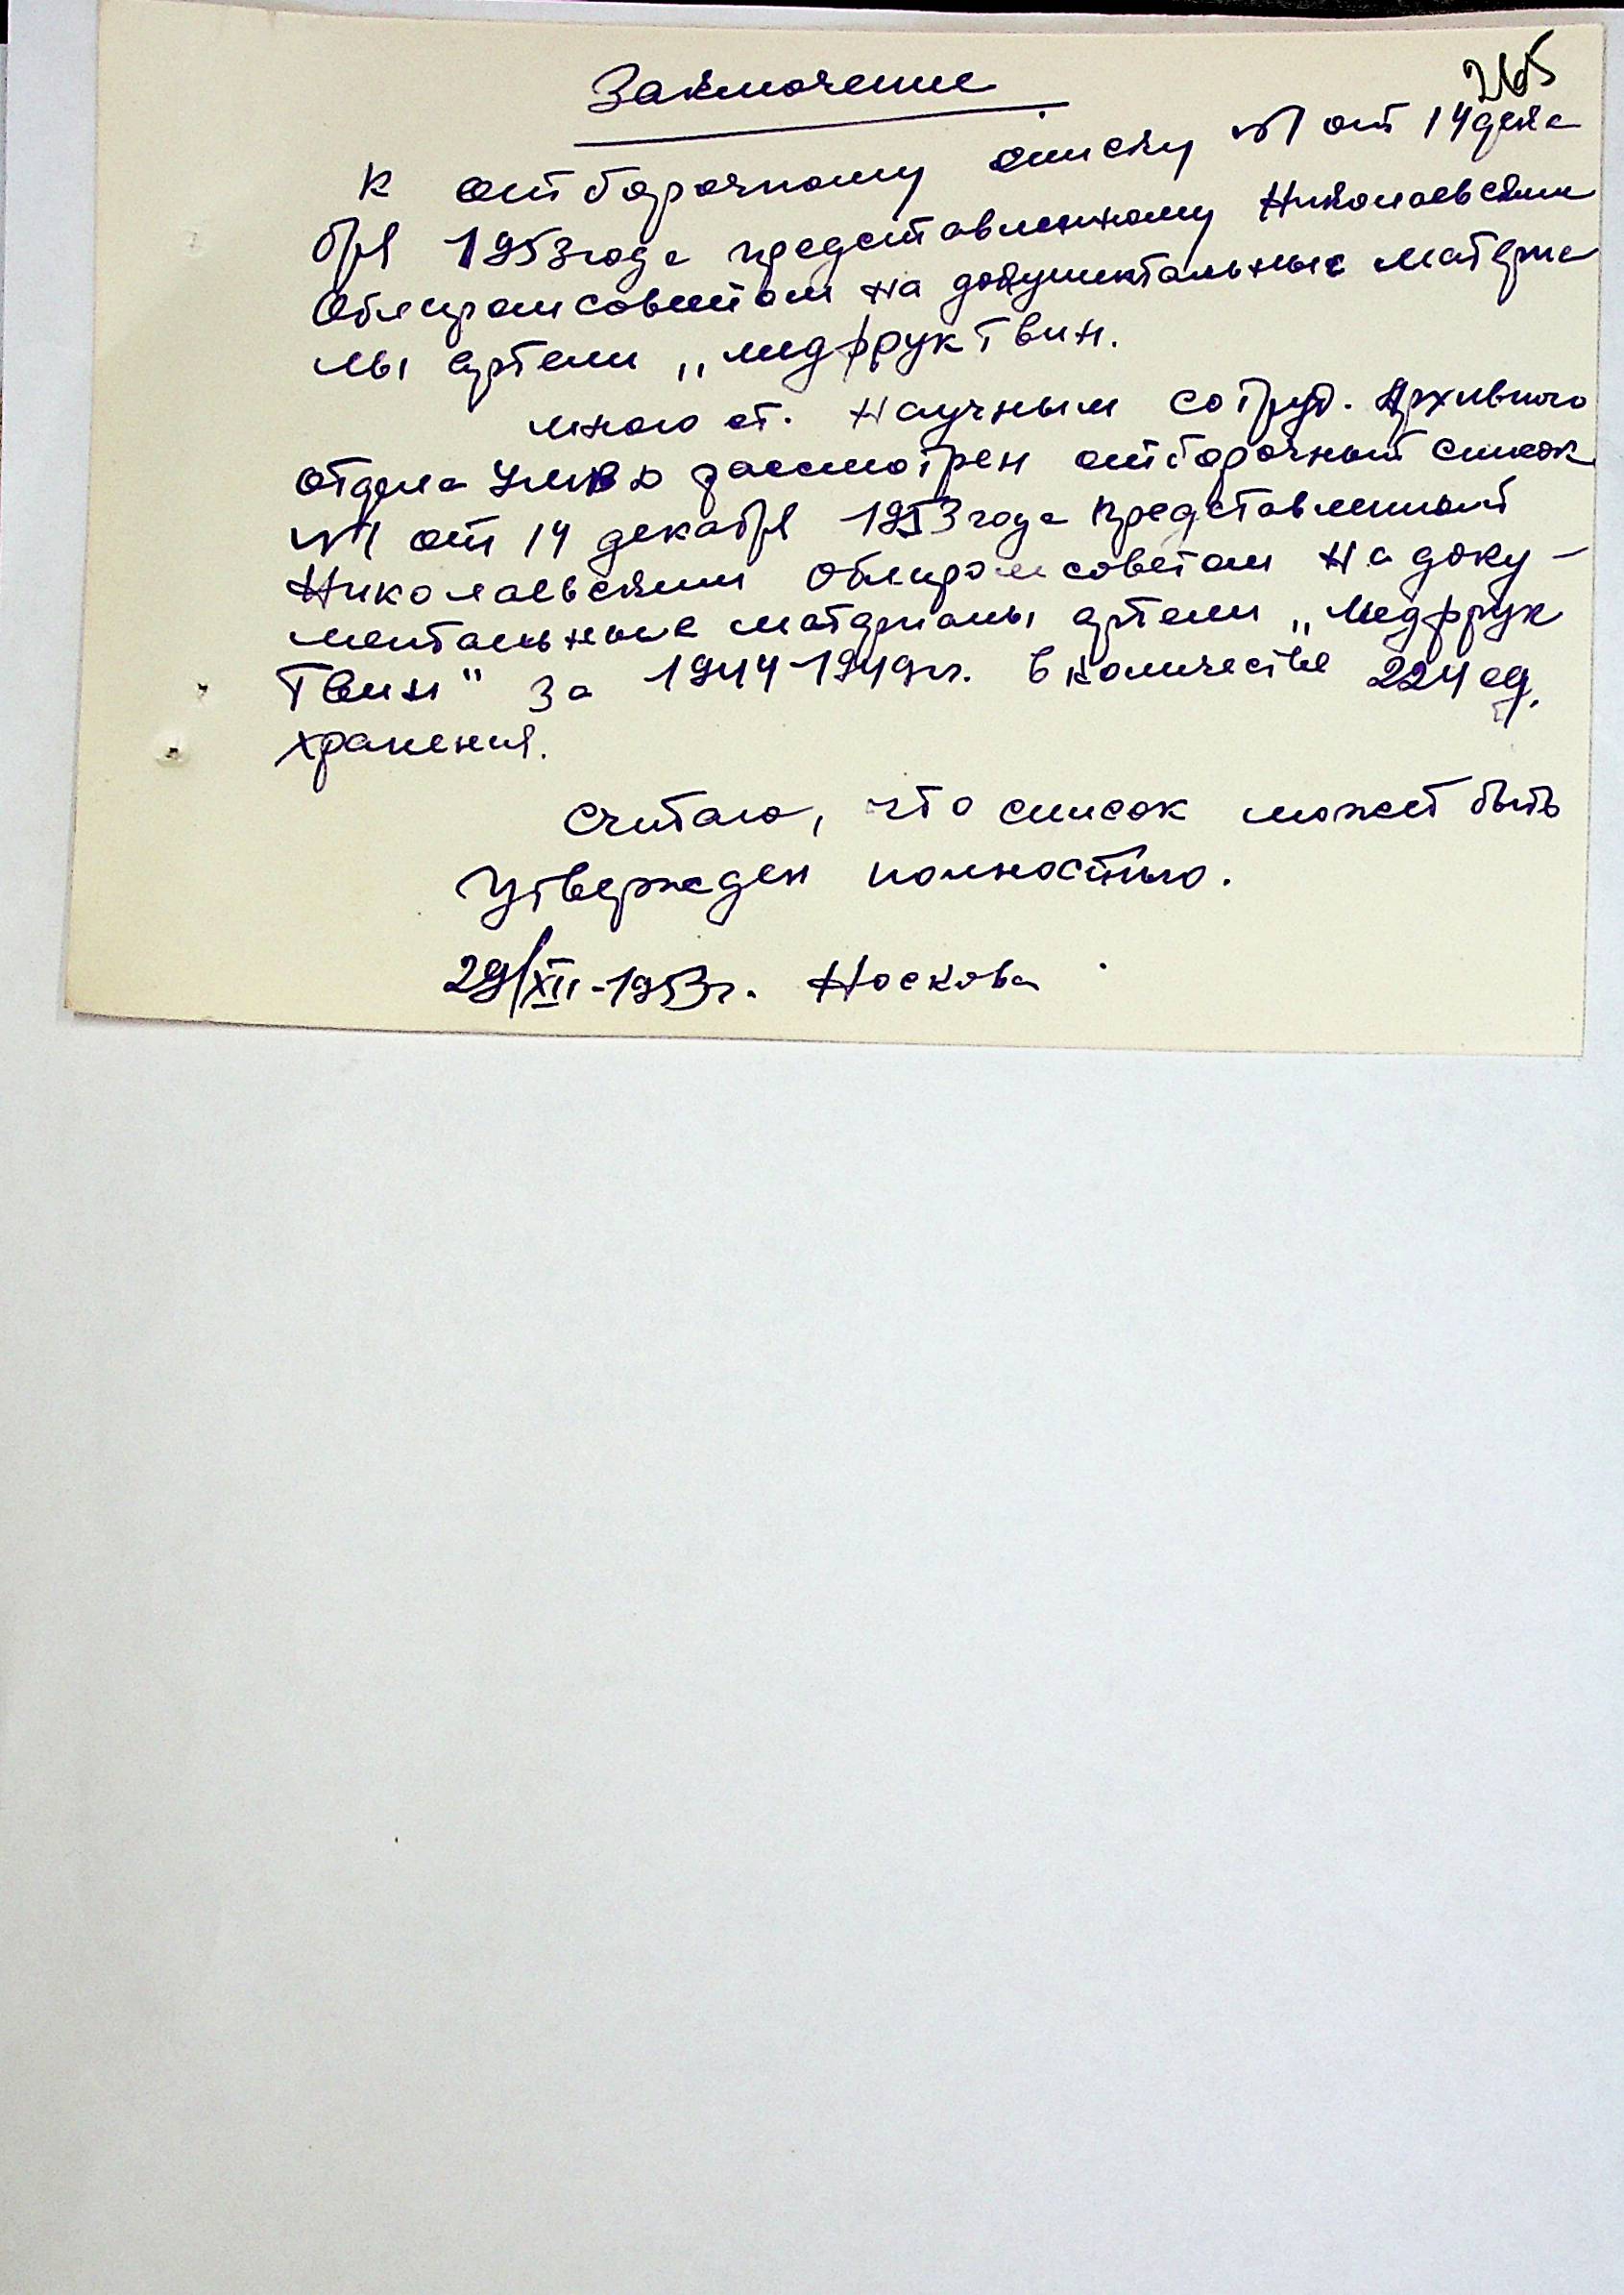 265
Заключение
к отборочному списку №1 от 14 дека
бря 1953 года представленному Николаевским
Облпромсоветом на документальные материа
лы артели „Медфруктвин.
Мною ст. научным сотруд. Архивного
отдела УМВД рассмотрен отборочный список
№1 от 14 декабря 1953 года представленный
Николаевским Облпромсоветом на доку-
ментальные материалы артели „Медфрук
твин" за 1944-1949гг. в количестве 224 ед.
хранения.
Считаю, что список может быть
утвержден полностью.
29/XII-1953г. Носкова